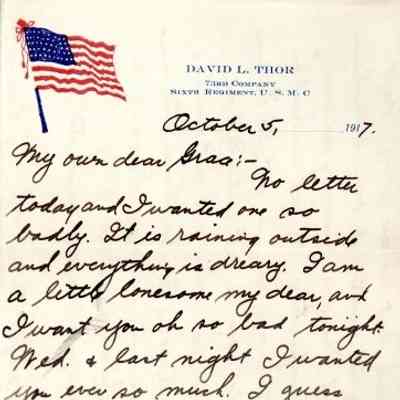 DAVID L. THOR
73RD COMPANY
SIXTH REGIMENT, U. S. M. C
October 5, 1917.
My own dear Grace:-
No letter
today and I wanted one so
badly. It is raining outside
and everything is dreary. I am
a little lonesome my dear, and
I want you oh so bad tonight.
Wed. & last night I wanted
you ever so much. I guess